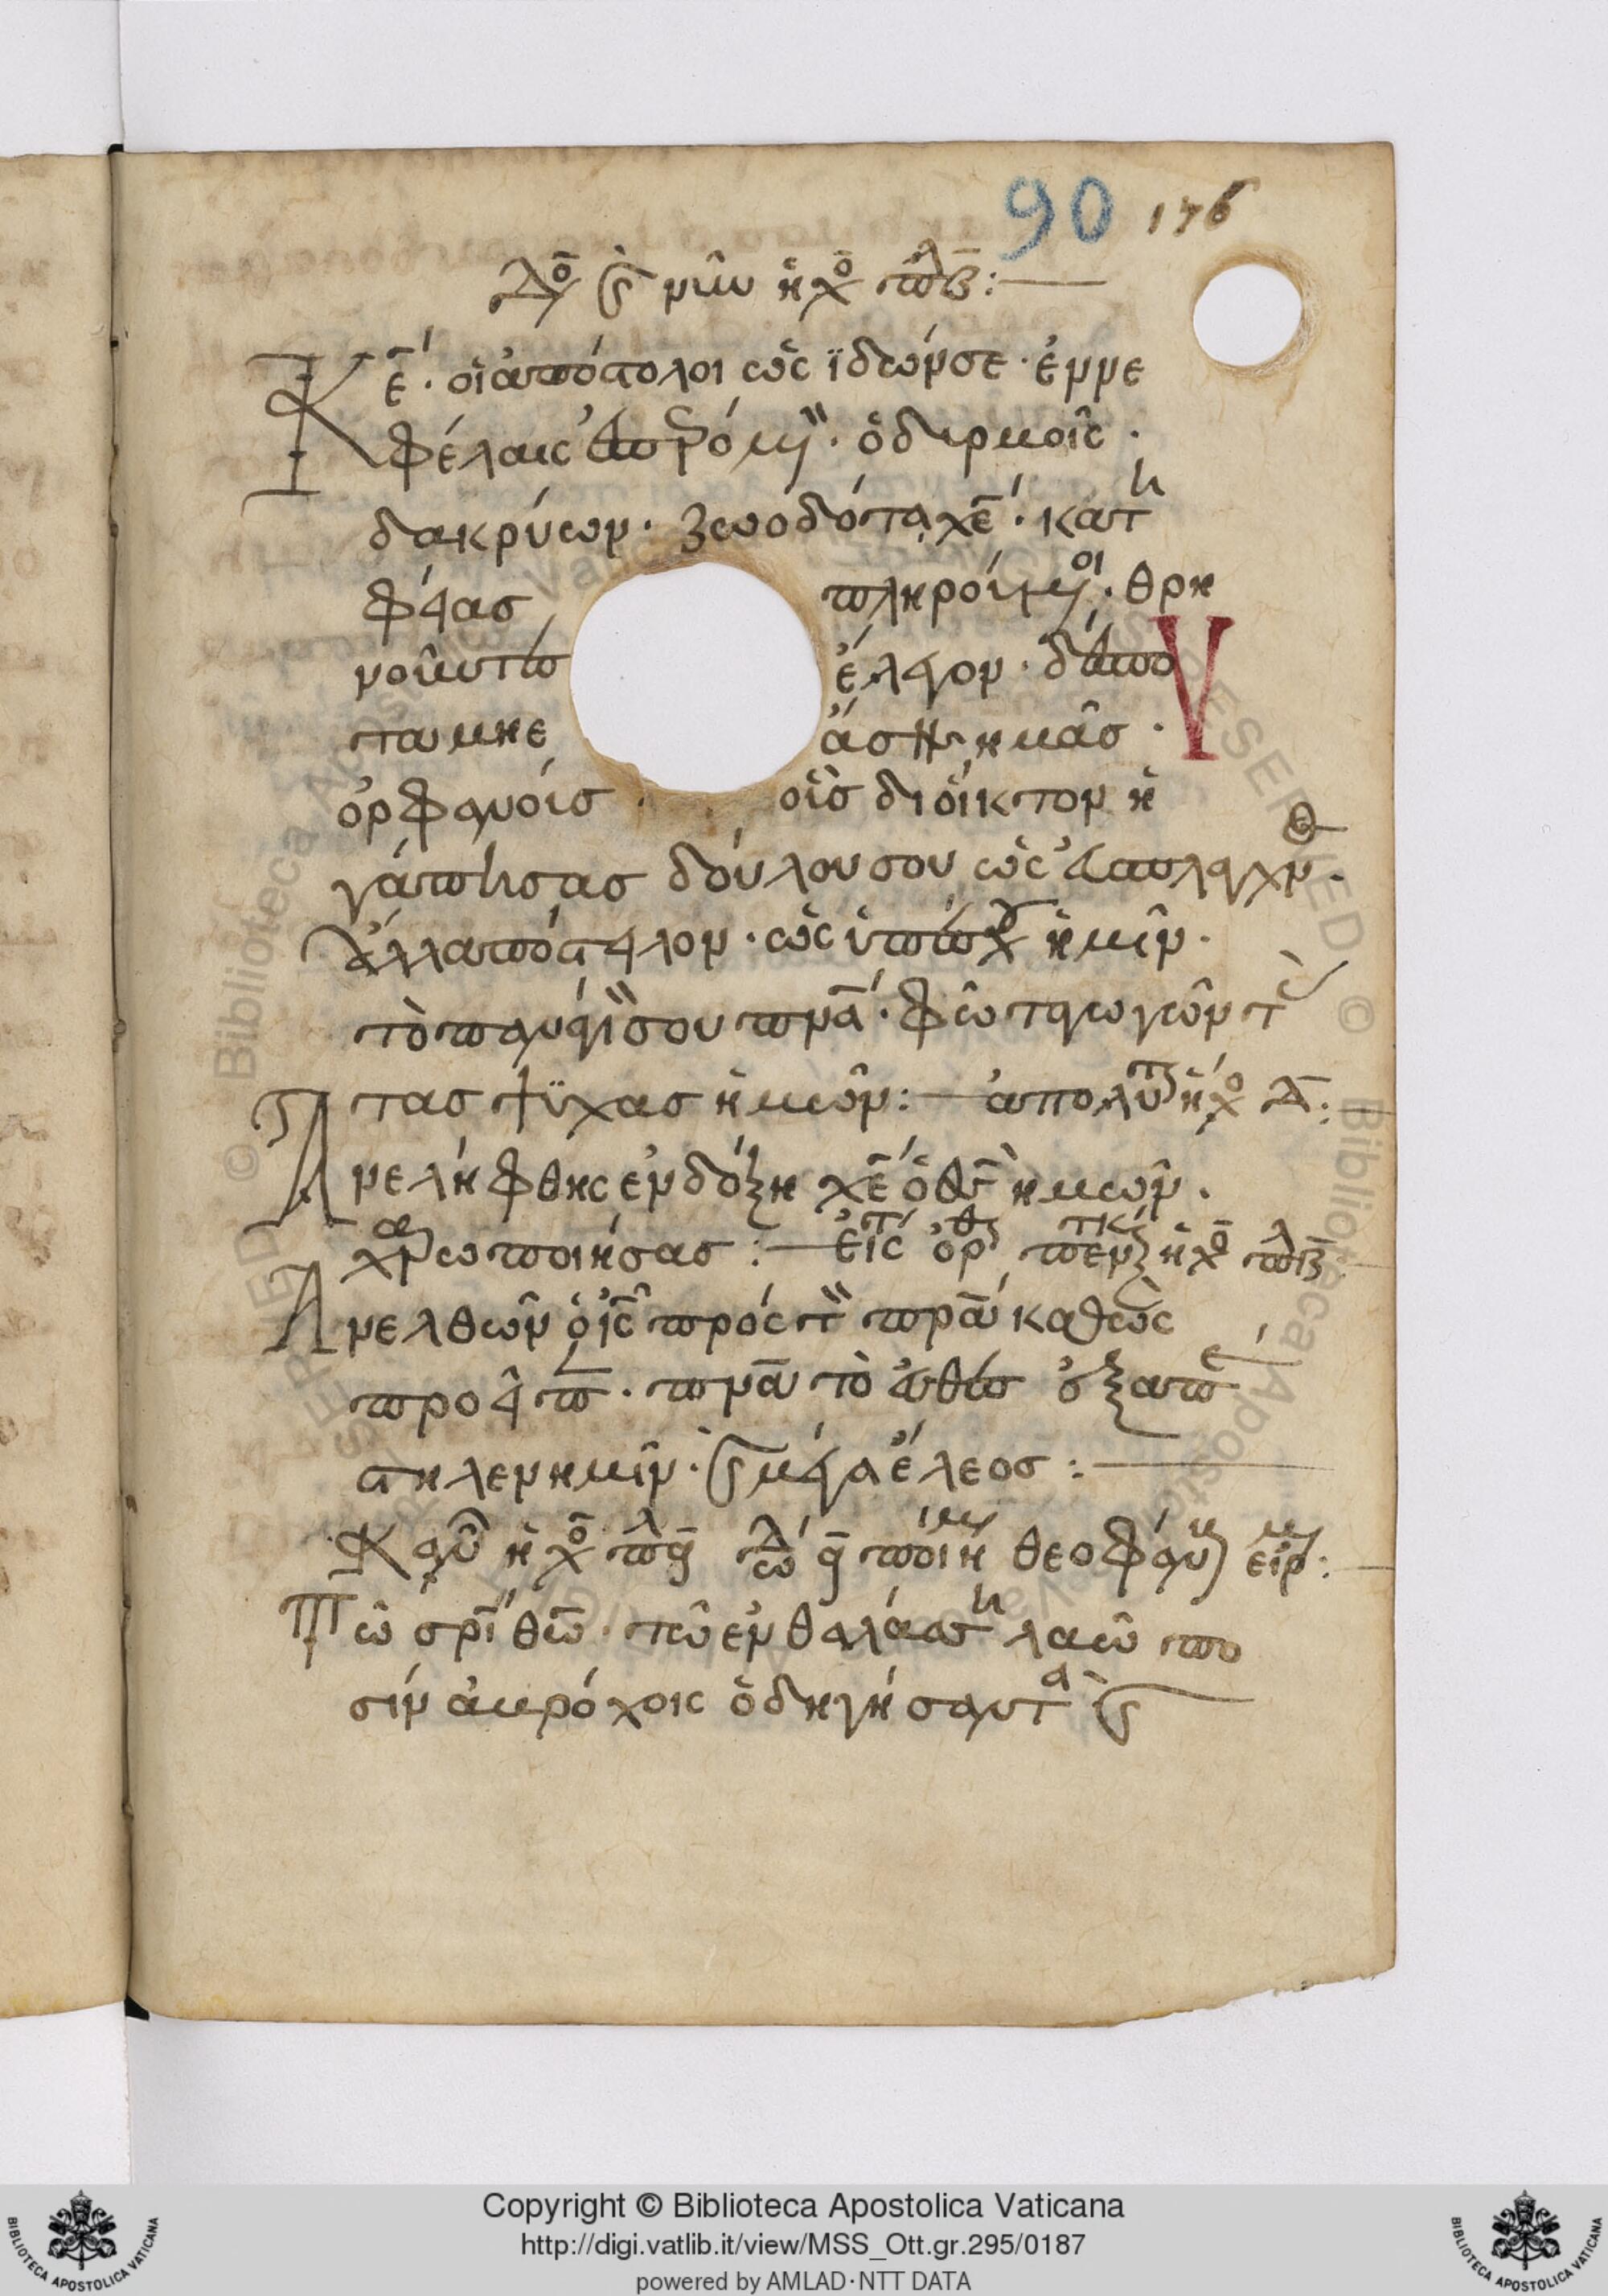 90 176
Δόξ κ νῦν ἦχο πλ β :—
Κε̄. οἱ ἀπόστολοι ὡς ἴδων σε. ἐν νε
φέλαις ἐπερόμεν. ὀδυρμοῖς.
δακρύων. ζωοδότα χε̄. κατη
φείας πληρούμενοι. θρη
νοῦντες ἔλεγον. δέσπο
τα μὴ ἐάσῃς ἡμᾶς.
ὀρφανούς οὓς δι οἶκτον ἠ
γάπησας δούλου σου ὡς εὔσπλαγχν.
ἀλλ ἀπόστειλον. ὡς ὑπέσχου ἡμῖν.
τὸ πανάγιόν σου πνᾱ. φωταγωγῶν τ
τας ψυχας ἡμῶν :— ἀπολυτ ἦχο Δ :—
Ανελήφθης ἐν δόξη χε̄ ὁ θς̄ ἡμῶν.
χαροποιήσας :— Εἰς τ ὀρθ πεντηκ ἦχο πλ β
Ανελθὼν ὁ ις̄ πρός τὸν πρᾱ καθὼς
προεῖπεν. πνᾱ τὸ εὐθὲς ἐξαπέ
στηλεν ημῖν. κ μέγα ἔλεος :—
Καν ἦχο πλ δ ωδ α ποίημ θεοφάν εἱρμ :—
Τῶ σρι θω̄. τῶ ἐν θαλάσση λαῶ πο
σίν ἀνρόχοις ὁδηγήσαντα κ
Copyright © Biblioteca Apostolica Vaticana
http://digi.vatlib.it/view/MSS_Ott.gr.295/0187
powered by AMLAD·NTT DATA
BIBLIOTECA APOSTOLICA VATICANA
BIBLIOTECA APOSTOLICA VATICANA